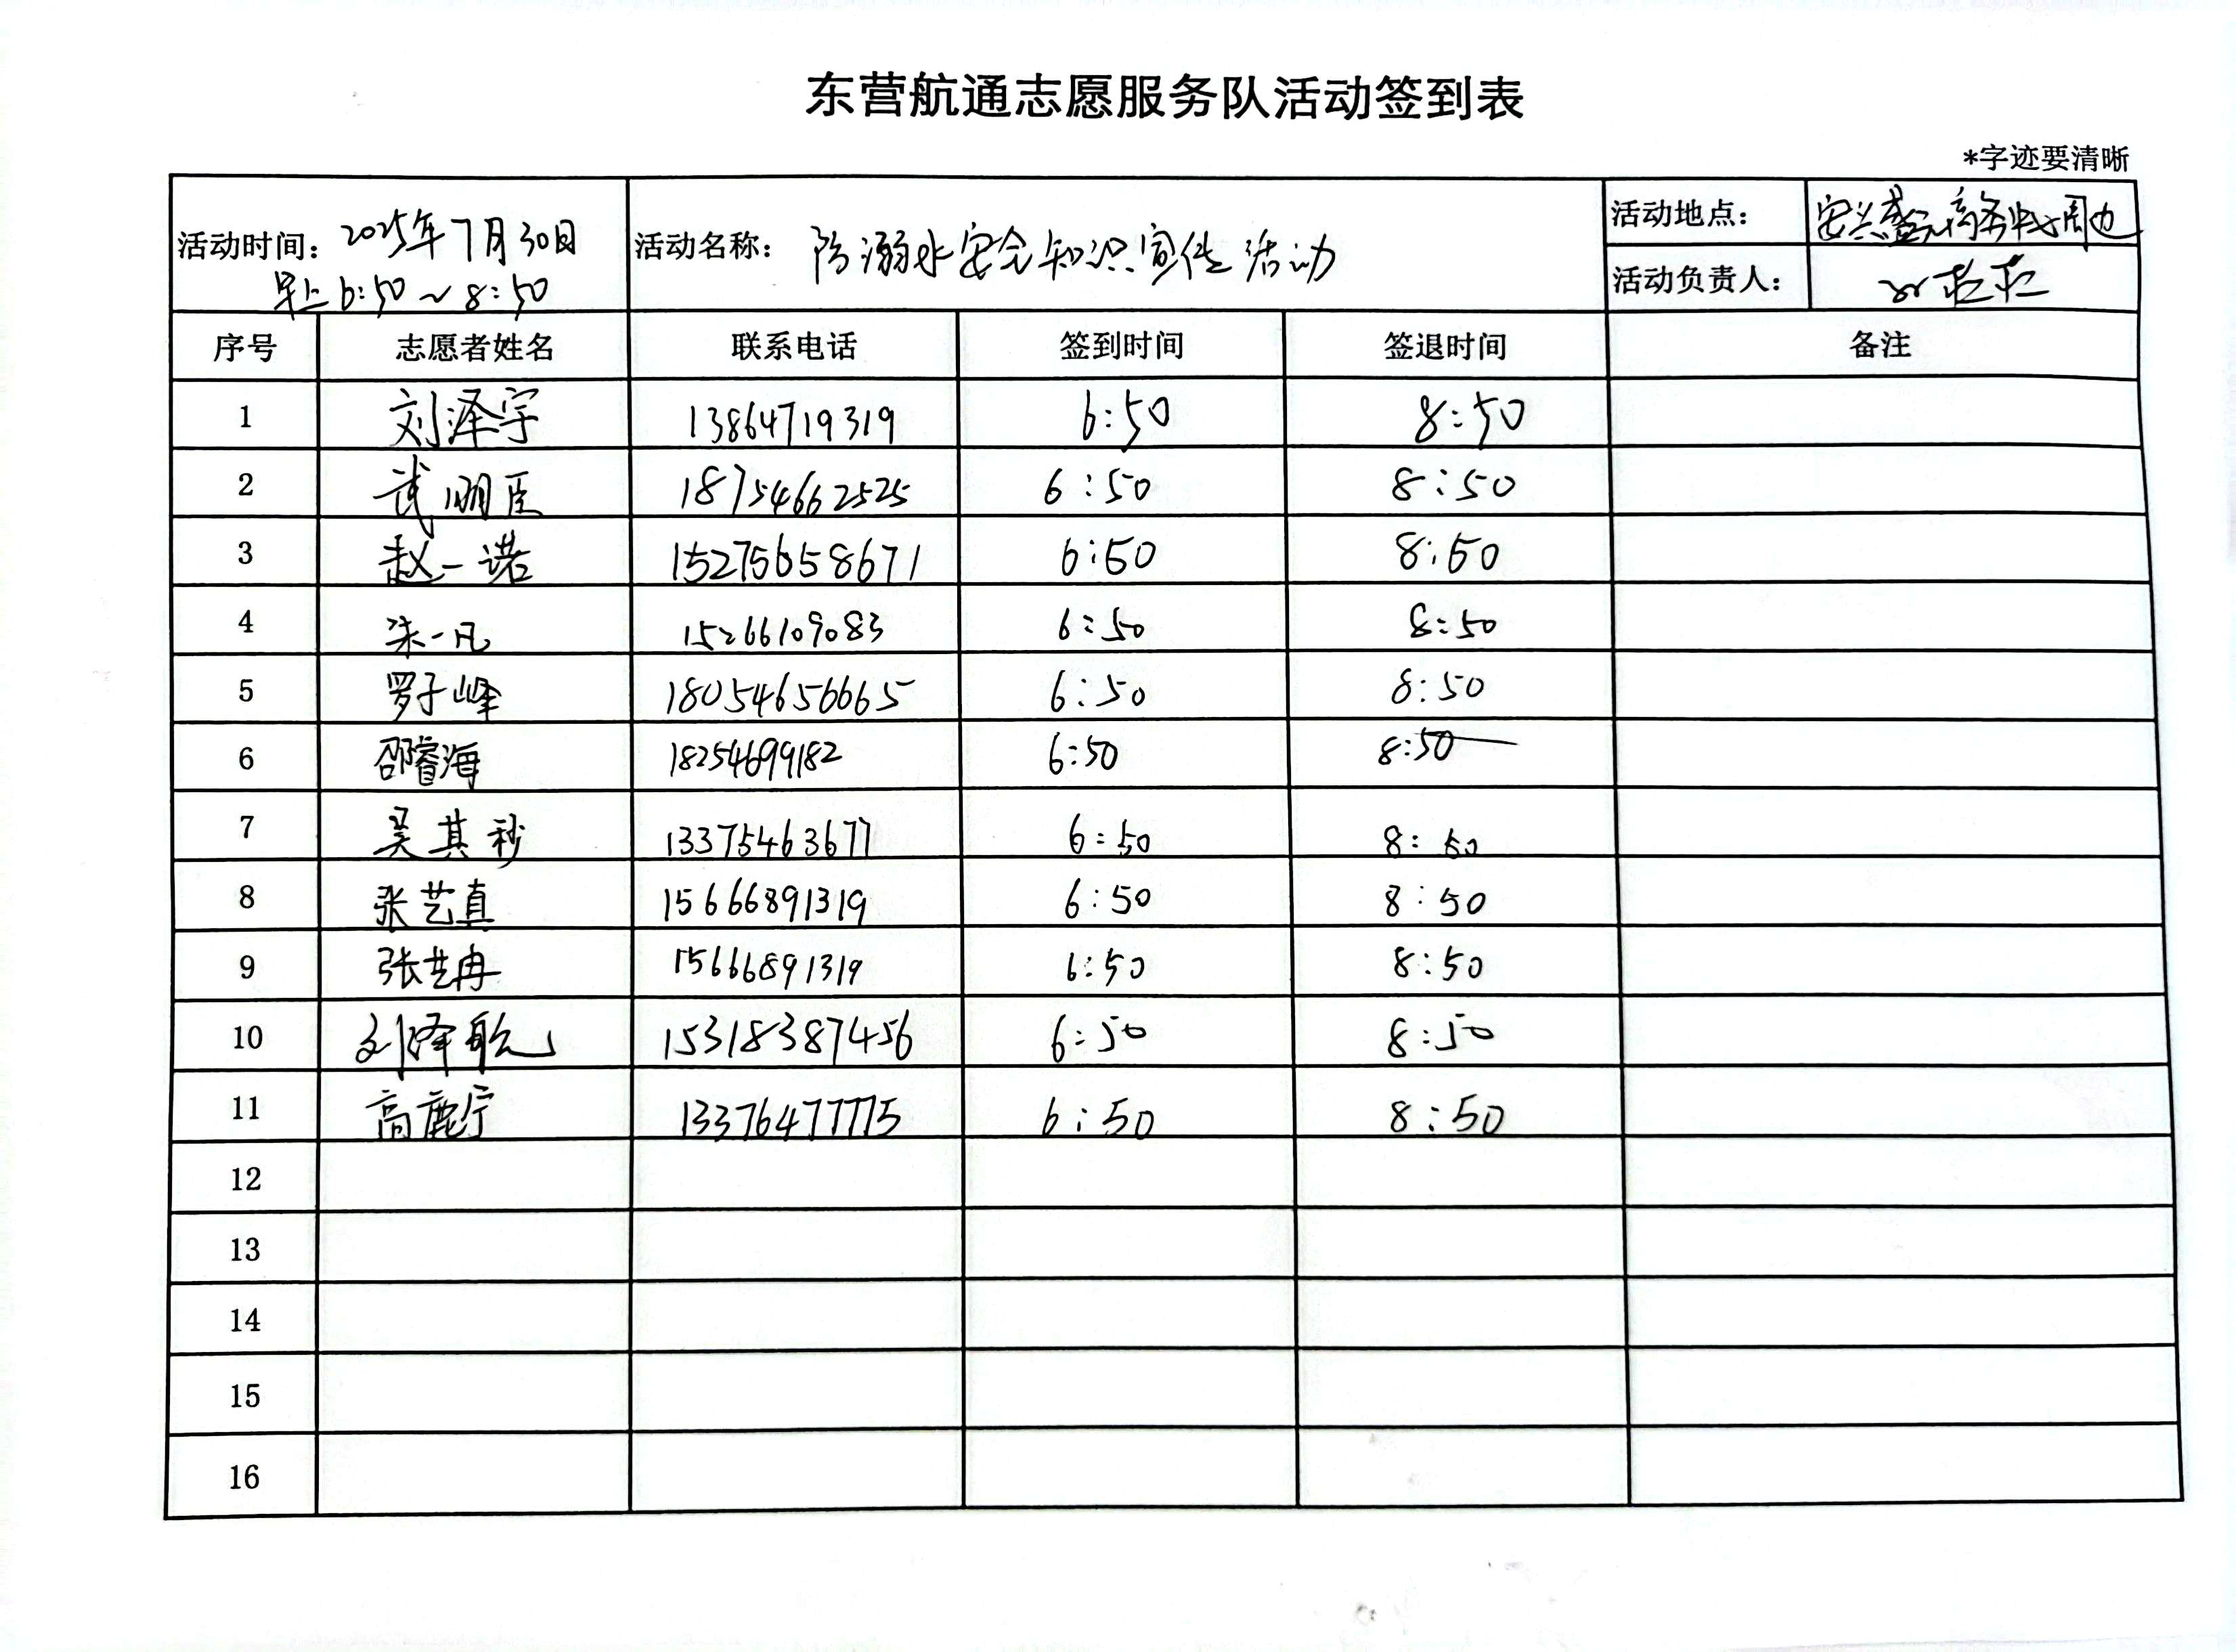 东营航通志愿服务队活动签到表
*字迹要清晰
活动时间：2025年7月30日 早上6:50~8:50
活动名称：防溺水安全知识宣传活动
活动地点：安兴盛元商务中心周边
活动负责人：
序号 志愿者姓名 联系电话 签到时间 签退时间 备注
1 刘泽宇 13864719319 6:50 8:50
2 武明臣 18754662525 6:50 8:50
3 赵一诺 15275658671 6:50 8:50
4 一凡 15266109083 6:50 8:50
5 罗子峰 18054656665 6:50 8:50
6 邵睿海 18254699182 6:50 8:50
7 吴其秒 13375463677 6:50 8:50
8 张艺真 15666891319 6:50 8:50
9 张艺冉 15666891319 6:50 8:50
10 刘泽航 15318387456 6:50 8:50
11 高鹿宁 13376477775 6:50 8:50
12
13
14
15
16